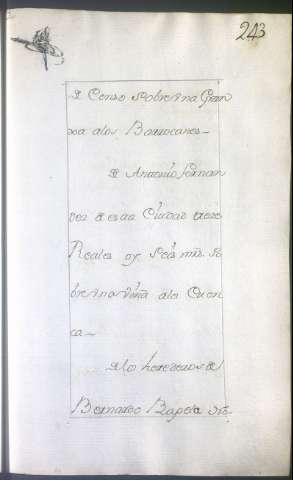 243
de Censo sobre una Gran
xa a los Barrocanes
de Antonio fernan
dez de esta Ciudad trece
Reales y seis mrs. so
bre una viña a la Cuen
ca
de los herederos de
Bernardo Zapata